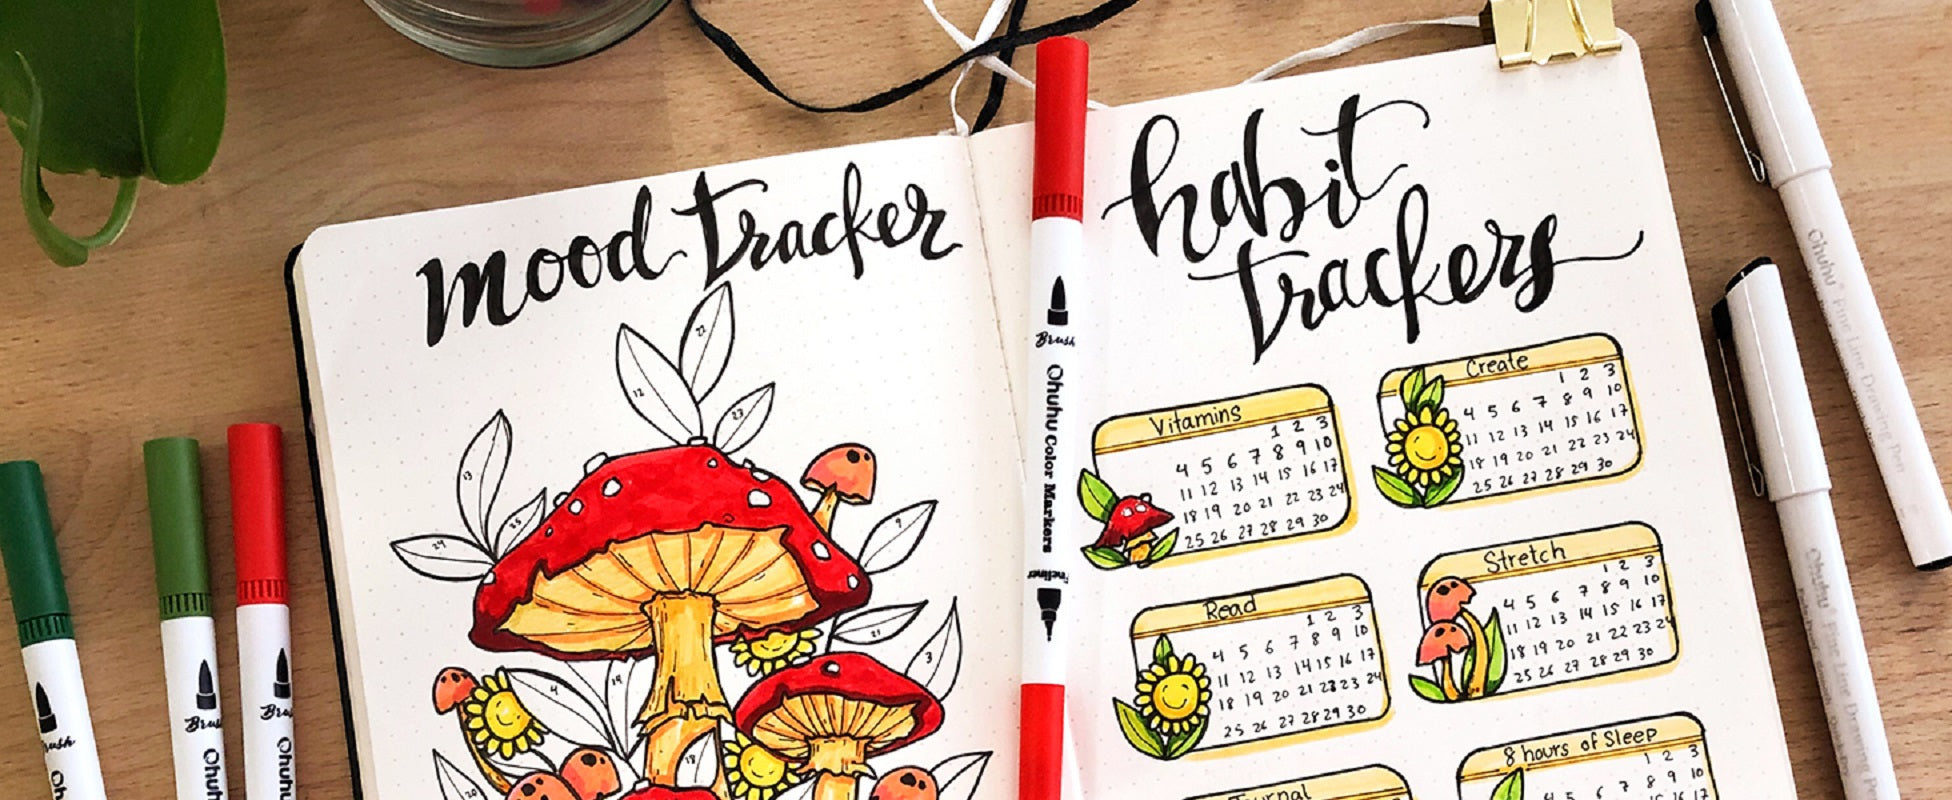 mood tracker
22
12
23
13
25
24
9
21
3
4
19
18
20
habit
trackers
Vitamins
1 2 3
4 5 6 7 8 9 10
11 12 13 14 15 16 17
18 19 20 21 22 23 24
25 26 27 28 29 30
Create
1 2 3
4 5 6 7 8 9 10
11 12 13 14 15 16 17
18 19 20 21 22 23 24
25 26 27 28 29 30
Read
1 2 3
4 5 6 7 8 9 10
11 12 13 14 15 16 17
18 19 20 21 22 23 24
25 26 27 28 29 30
Stretch
1 2 3
4 5 6 7 8 9 10
11 12 13 14 15 16 17
18 19 20 21 22 23 24
25 26 27 28 29 30
Journal
8 hours of Sleep
1 2 3
4 5 6 7 8 9 10
15 16 17
Brush
Ohuhu Color Markers
Fineliner
Brush
Ohuhu
Brush
Ohuhu
Brush
Oh
Ohuhu Fine Line Drawing Pen
Ohuhu Fine Line Drawing Pen